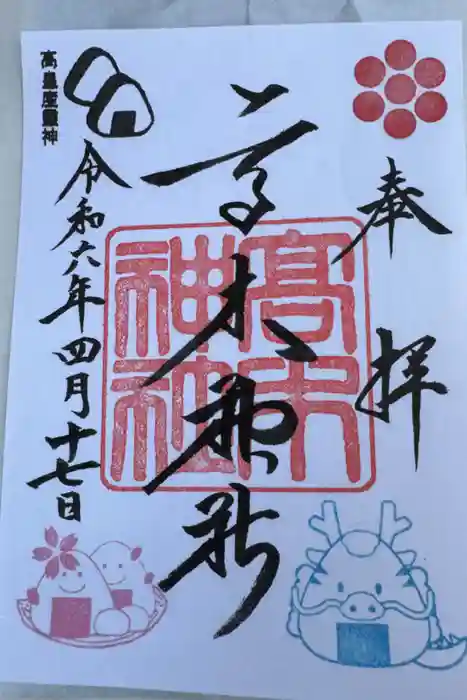 奉拝
高木神社
高木神社
令和六年四月十七日
高皇産霊神